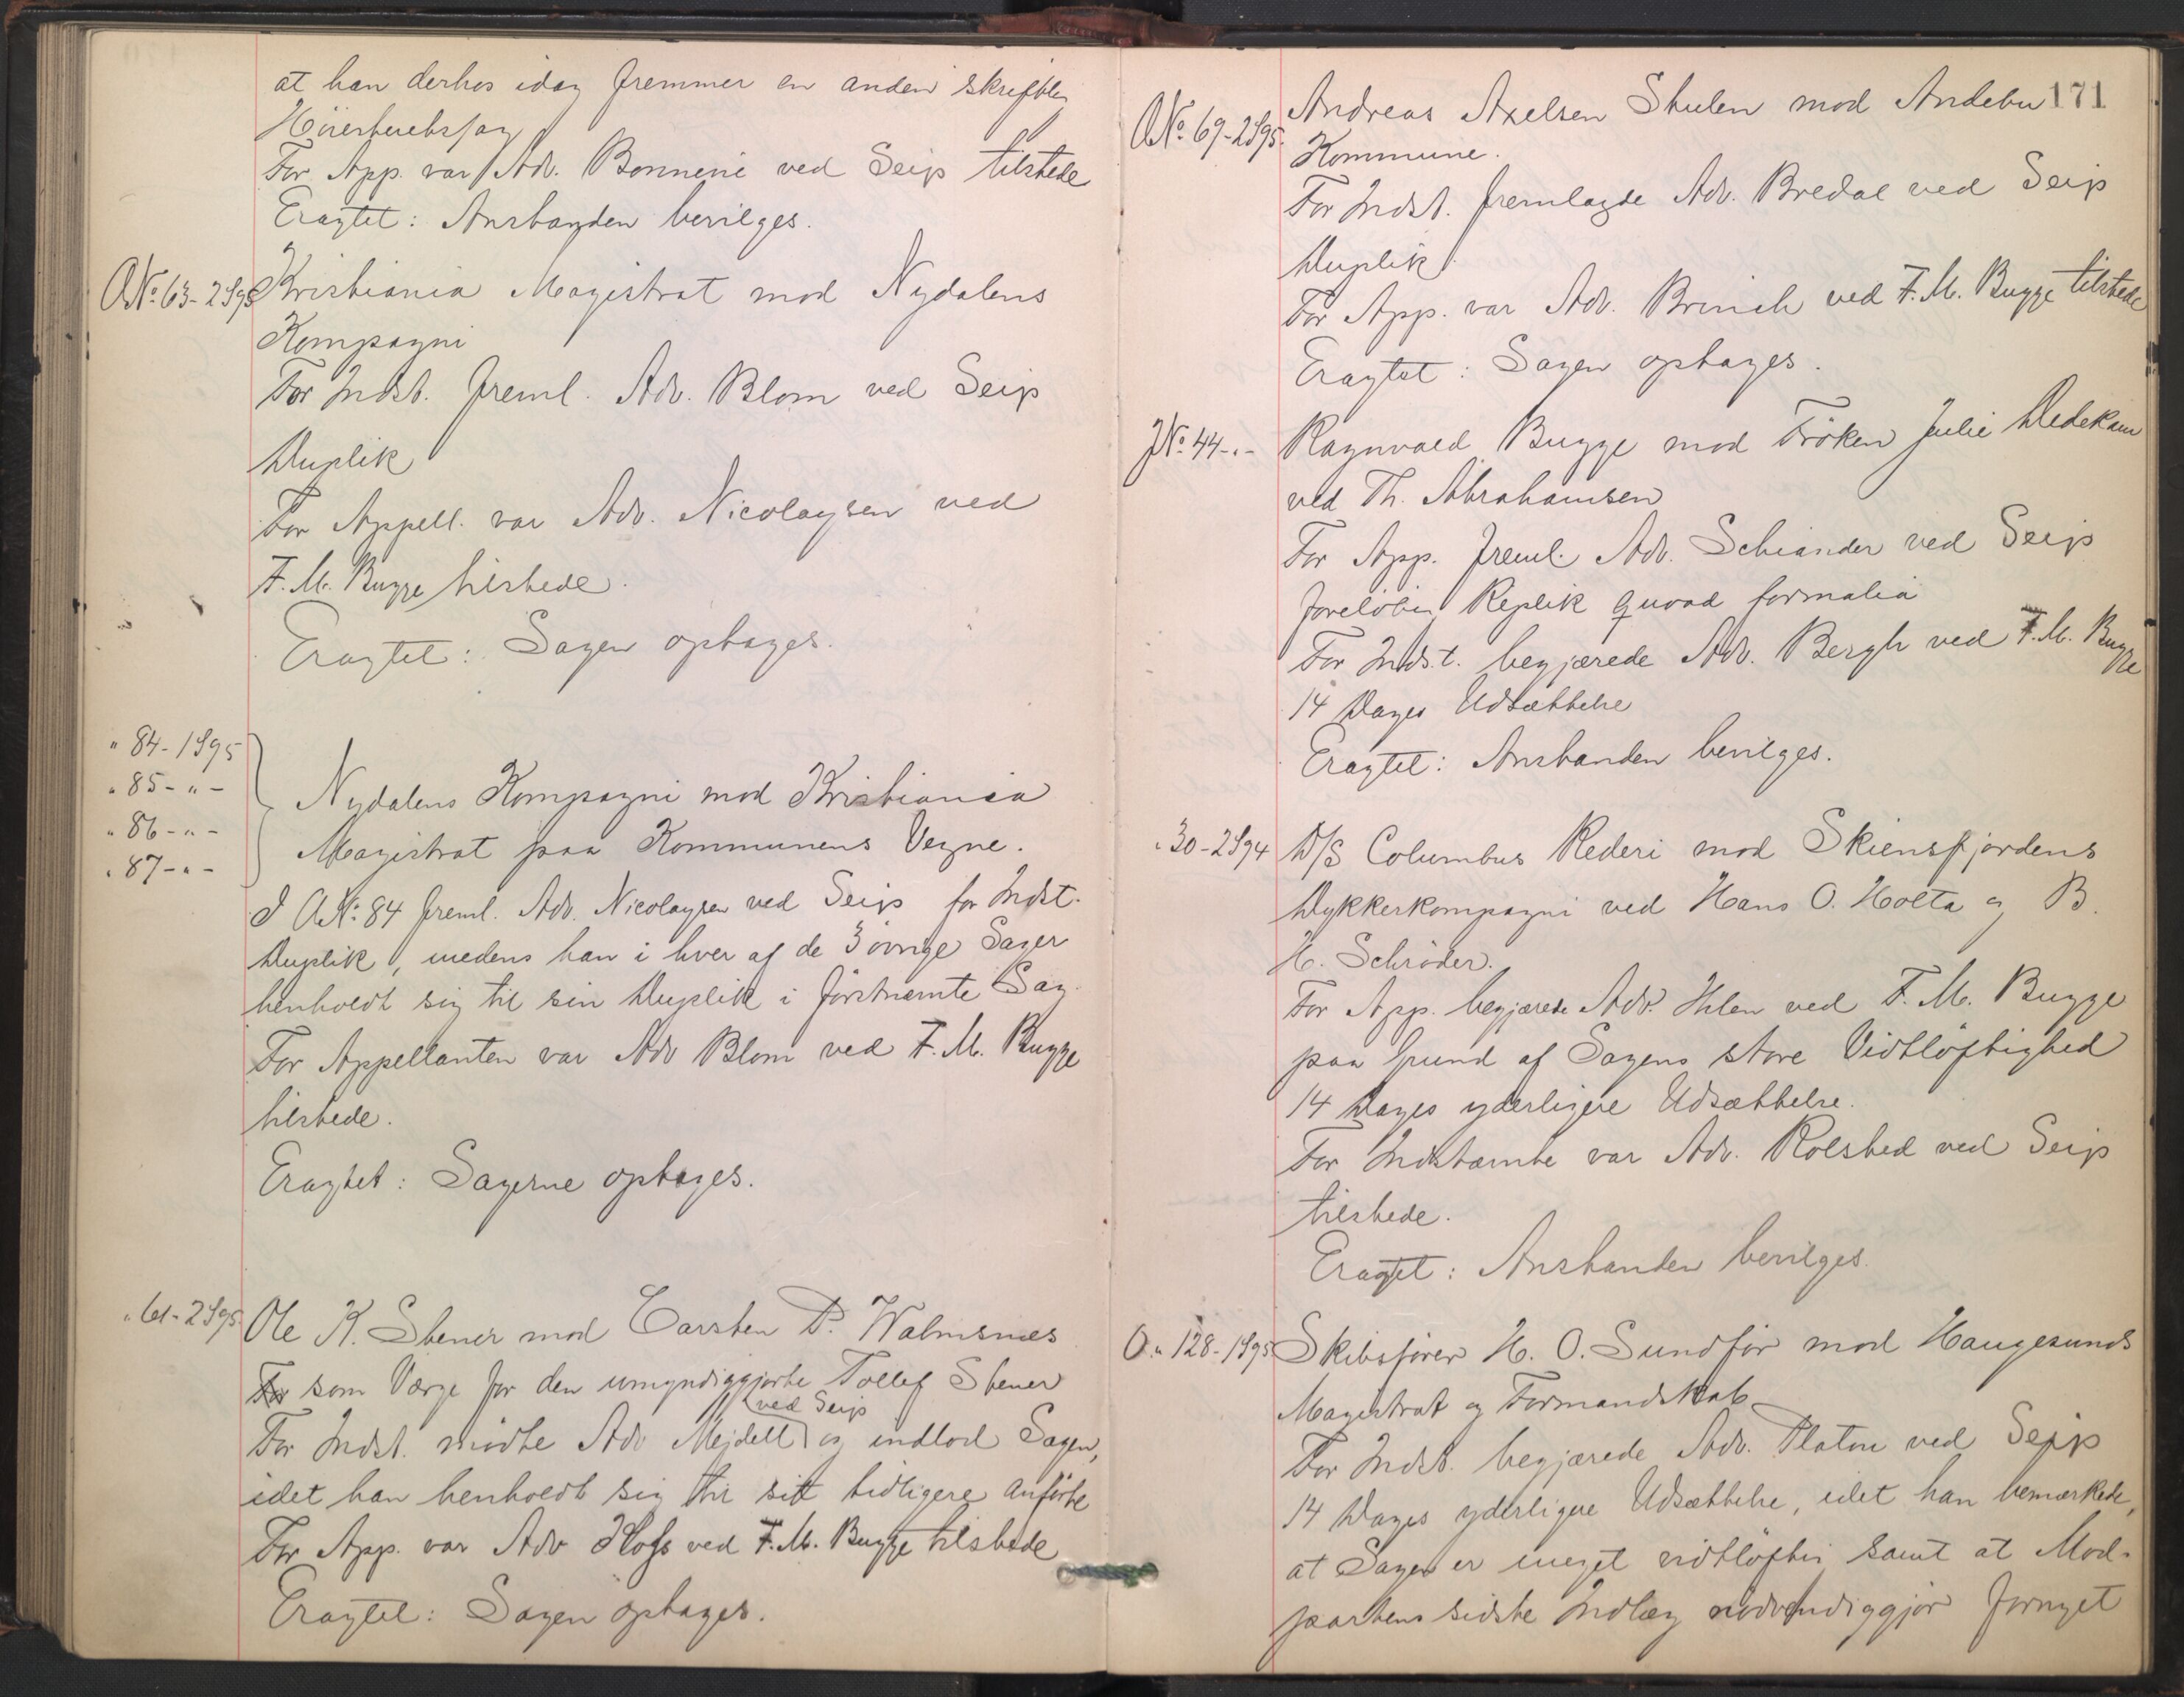 at han derhos idag fremmer en anden skriftlig
Höiesteretssag
For App. var Adv. Bonnevie ved Seip tilstede
Eragtet: Anstanden bevilges.
A No. 63-2S95 Kristiania Magistrat mod Nydalens
Kompagni
For Indst. freml. Adv. Blom ved Seip
Duplik
For Appell. var Adv. Nicolaysen ved
F. M. Bugge tilstede.
Eragtet: Sagen optages.
" 84-1S95
" 85-"-
" 86-"-
" 87-"-
Nydalens Kompagni mod Kristiania
Magistrat paa Kommunens Vegne.
I A No. 84 freml. Adv. Nicolaysen ved Seip for Indst.
Duplik, medens han i hver af de 3 övrige Sager
henholdt sig til sin Duplik i förstnævnte Sag.
For Appellanten var Adv Blom ved F. M. Bugge
tilstede.
Eragtet: Sagerne optages.
" 61-2S95 Ole K. Stener mod Carsten P. Walmsnæs
For som Værge for den umyndiggjorte Tollef Stener
ved Seip
For Indst. mödte Adv Mejdell og indlod Sagen,
idet han henholdt sig til sit tidligere anförte
For App. var Adv Hofs ved F. M. Bugge tilstede
Eragtet: Sagen optages.
171
A No. 69-2S95. Andreas Axelsen Skulen mod Andebu
Kommune.
For Indst. fremlagde Adv. Bredal ved Seip
Duplik
For App. var Adv. Brinch ved F. M. Bugge tilstede
Eragtet: Sagen optages.
J No. 44-"- Ragnvald Bugge mod Fröken Julie Dedekam
ved Th. Abrahamsen
For App. freml. Adv. Schiander ved Seip
forelöbig Replik quoad formalia
For Indst. begjærede Adv. Bergh ved F. M. Bugge
14 Dages Udsættelse
Eragtet: Anstanden bevilges.
" 30-2S94 D/S Columbus Rederi mod Skiensfjordens
Dykkerkompagni ved Hans O. Holta og B.
H. Schröder.
For App. begjærede Adv. Ihlen ved F. M. Bugge
paa Grund af Sagens store Vidtlöftighed
14 Dages yderligere Udsættelse.
For Indstævnte var Adv. Rolsted ved Seip
tilstede.
Eragtet: Anstanden bevilges.
O " 128-1S95 Skibsförer H. O. Sundför mod Haugesunds
Magistrat og Formandskab
For Indst. begjærede Adv. Platou ved Seip
14 Dages yderligere Udsættelse, idet han bemærkede,
at Sagen er meget vidtlöftig samt at Mod-
partens sidste Indlæg nödvendiggjör fornyet